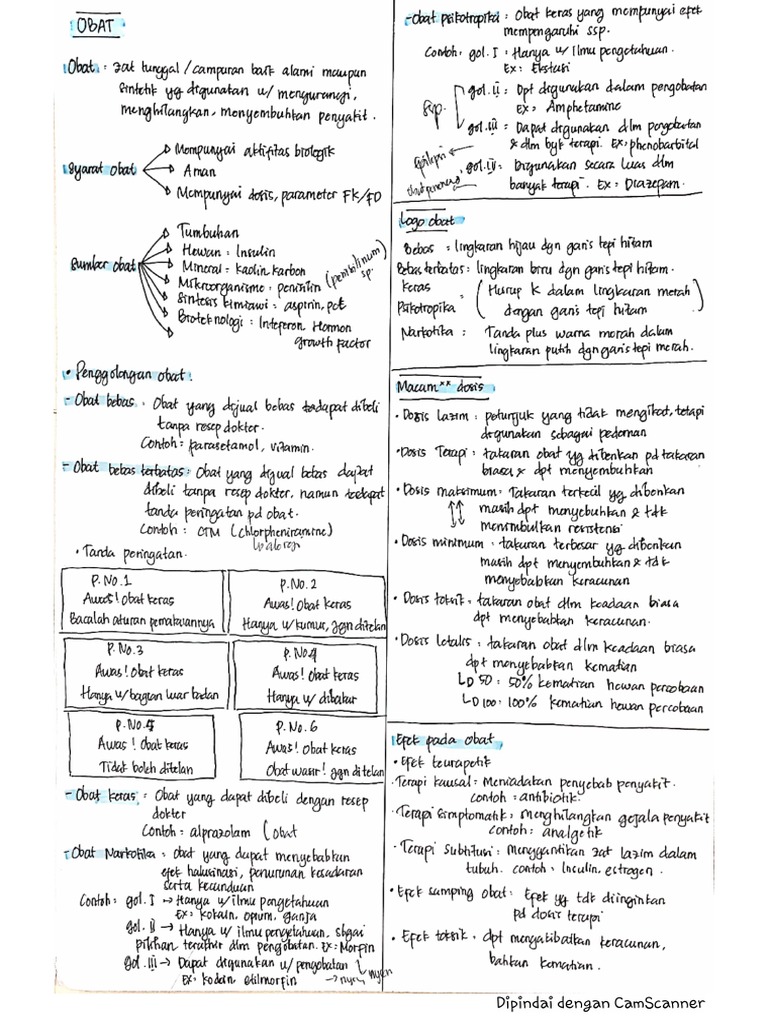 OBAT
Obat : zat tunggal / campuran baik alami maupun
sintetik yg digunakan u/ mengurangi,
menghilangkan, menyembuhkan penyakit.
Syarat obat
Mempunyai aktifitas biologik
Aman
Mempunyai dosis, parameter FK/FD
Sumber obat
Tumbuhan
Hewan : Insulin
Mineral = kaolin karbon
Mikroorganisme : penisilin
sp.
Sintesis kimiawi = aspirin, pct
Bioteknologi : Inteferon, Hormon
growth factor
• Penggolongan obat :
- Obat bebas : Obat yang dijual bebas terdapat dibeli
tanpa resep dokter.
Contoh : parasetamol, vitamin.
- Obat bebas terbatas : Obat yang dijual bebas dapat
dibeli tanpa resep dokter, namun terdapat
tanda peringatan pd obat.
Contoh : CTM (chlorpheniramine)
• Tanda peringatan.
P. No. 1
Awas! Obat keras
Bacalah aturan pemakaiannya
P. No. 2
Awas! Obat Keras
Hanya u/ kumur, jgn ditelan
P. No. 3
Awas! Obat keras
Hanya u/ bagian luar badan
P. No. 4
Awas! Obat keras
Hanya u/ dibakar
P. No. 5
Awas! Obat keras
Tidak boleh ditelan
P. No. 6
Awas! Obat keras
Obat wasir! jgn ditelan
- Obat keras : Obat yang dapat dibeli dengan resep
dokter
Contoh = alprazolam (obat
- Obat Narkotika = obat yang dapat menyebabkan
efek halusinasi, penurunan kesadaran
serta kecanduan
Contoh : gol. I → Hanya u/ ilmu pengetahuan
Ex : kokain, opium, ganja
gol. II → Hanya u/ ilmu pengetahuan, sbgai
pilihan terakhir dlm pengobatan. Ex : Morfin
gol. III → Dapat digunakan u/ pengobatan
Ex : kodein etilmorfin
- Obat psikotropika : Obat keras yang mempunyai efek
mempengaruhi ssp.
Contoh : gol. I = Hanya u/ ilmu pengetahuan.
Ex : Ekstasi
gol. II : Dpt digunakan dalam pengobatan
Ex, Amphetamine
gol. III : Dapat digunakan dlm pengobatan
& dlm byk terapi. Ex, phenobarbital
Epilepsi
gol. IV : Digunakan secara luas dlm
banyak terapi. Ex = Diazepam.
Logo obat
Bebas = lingkaran hijau dgn garis tepi hitam
Bebas terbatas : lingkaran biru dgn garis tepi hitam.
Keras
Psikotropika = ( Huruf K dalam lingkaran merah
dengan garis tepi hitam )
Narkotika : Tanda plus warna merah dalam
lingkaran putih dgn garis tepi merah.
Macam** dosis
• Dosis lazim : petunjuk yang tidak mengikat, tetapi
digunakan sebagai pedoman
• Dosis Terapi : takaran obat yg diberikan pd takaran
biasa & dpt menyembuhkan
• Dosis maksimum : Takaran terkecil yg diberikan
masih dpt menyebuhkan & tdk
menimbulkan resistensi
• Dosis minimum : takaran terbesar yg diberikan
masih dpt menyembuhkan & tdk
menyebabkan keracunan
• Dosis toksik : takaran obat dlm keadaan biasa
dpt menyebabkan keracunan.
• Dosis letalis : takaran obat dlm keadaan biasa
dpt menyebabkan kematian
LD 50 : 50% kematian hewan percobaan
LD 100 : 100% kematian hewan percobaan
Efek pada obat,
• Efek teurapetik
• Terapi kausal = Meniadakan penyebab penyakit.
contoh = antibiotik
• Terapi simptomatik : menghilangkan gejala penyakit
contoh : analgetik
• Terapi subtitusi : Menggantikan zat lazim dalam
tubuh. contoh = Insulin, estrogen.
• Efek samping obat : Efek yg tdk diinginkan
pd dosis terapi
• Efek toksik : dpt mengakibatkan keracunan,
bahkan kematian.
Dipindai dengan CamScanner